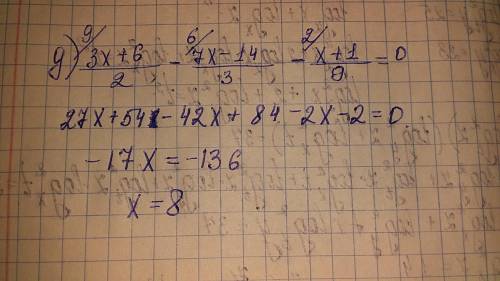 д) 9/ 3x+6/2 - 6/ 7x-14/3 - 2/ x+1/9 = 0
27x+54-42x+84-2x-2=0
-17x=-136
x=8